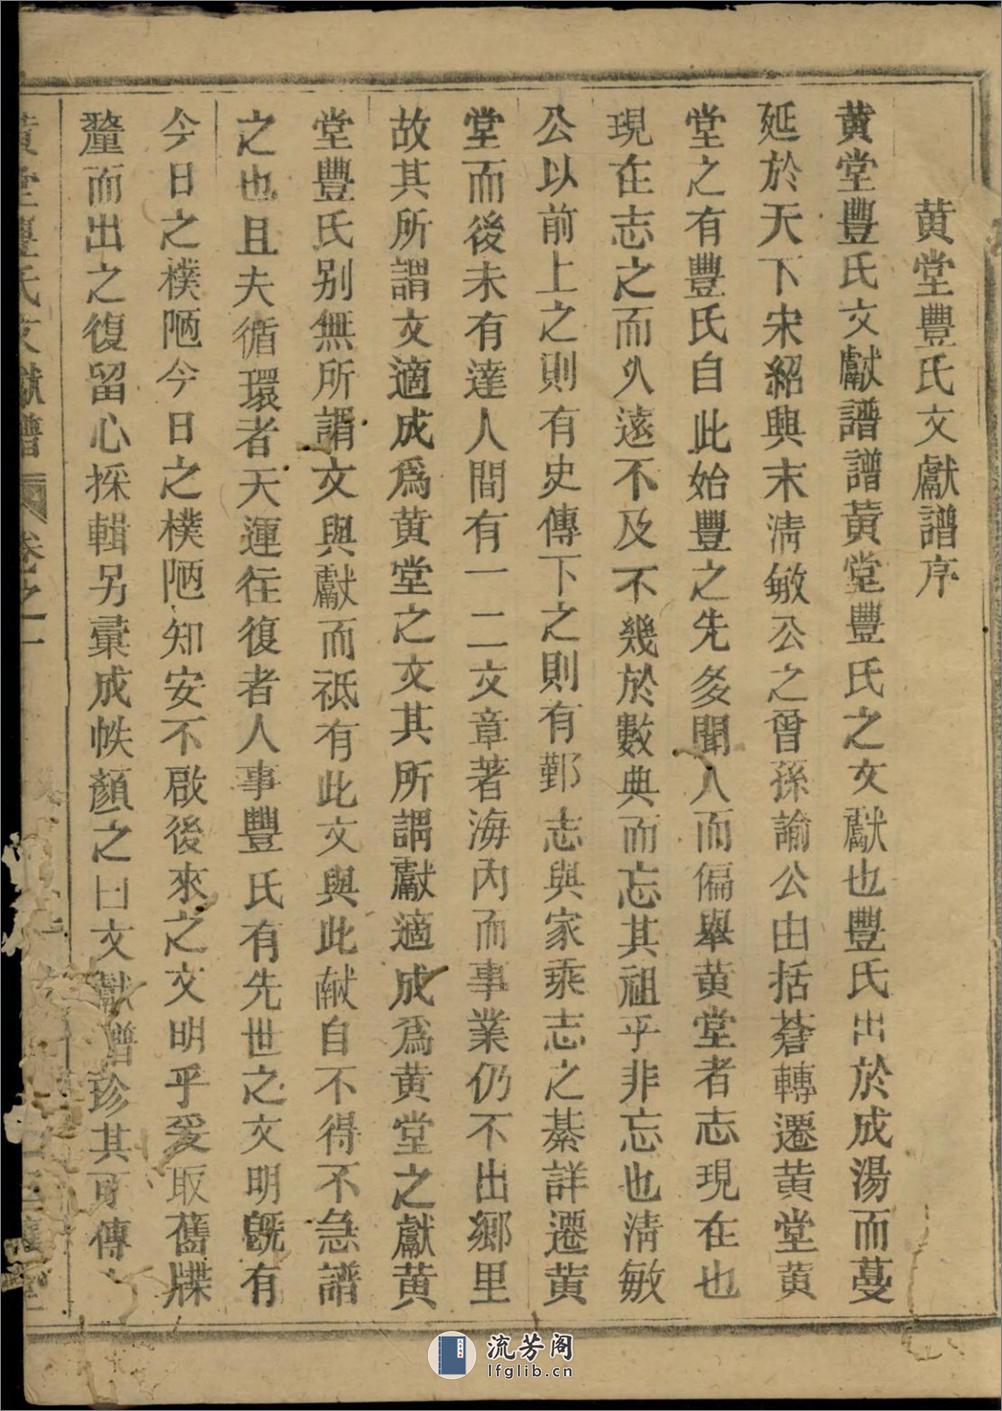 黄堂豐氏文獻譜序
黄堂豐氏文獻譜譜黄堂豐氏之文獻也豐氏出於成湯而蔓
延於天下宋紹興末淸敏公之曾孫諭公由括蒼轉遷黄堂黄
堂之有豐氏自此始豐之先多聞人而偏舉黄堂者志現在也
現在志之而久遠不及不幾於數典而忘其祖乎非忘也淸敏
公以前上之則有史傳下之則有鄞志與家乘志之綦詳遷黄
堂而後未有達人間有一二文章著海內而事業仍不出鄉里
故其所謂文適成爲黄堂之文其所謂獻適成爲黄堂之獻黄
堂豐氏别無所謂文與獻而祗有此文與此献自不得不急譜
之也且夫循環者天運往復者人事豐氏有先世之文明旣有
今日之樸陋今日之樸陋知安不啟後來之文明乎爰取舊牒
釐而出之復留心採輯另彙成帙顏之曰文獻譜珍其可傳
黄堂豐氏文獻譜 卷之一
流芳阁
lfglib.cn